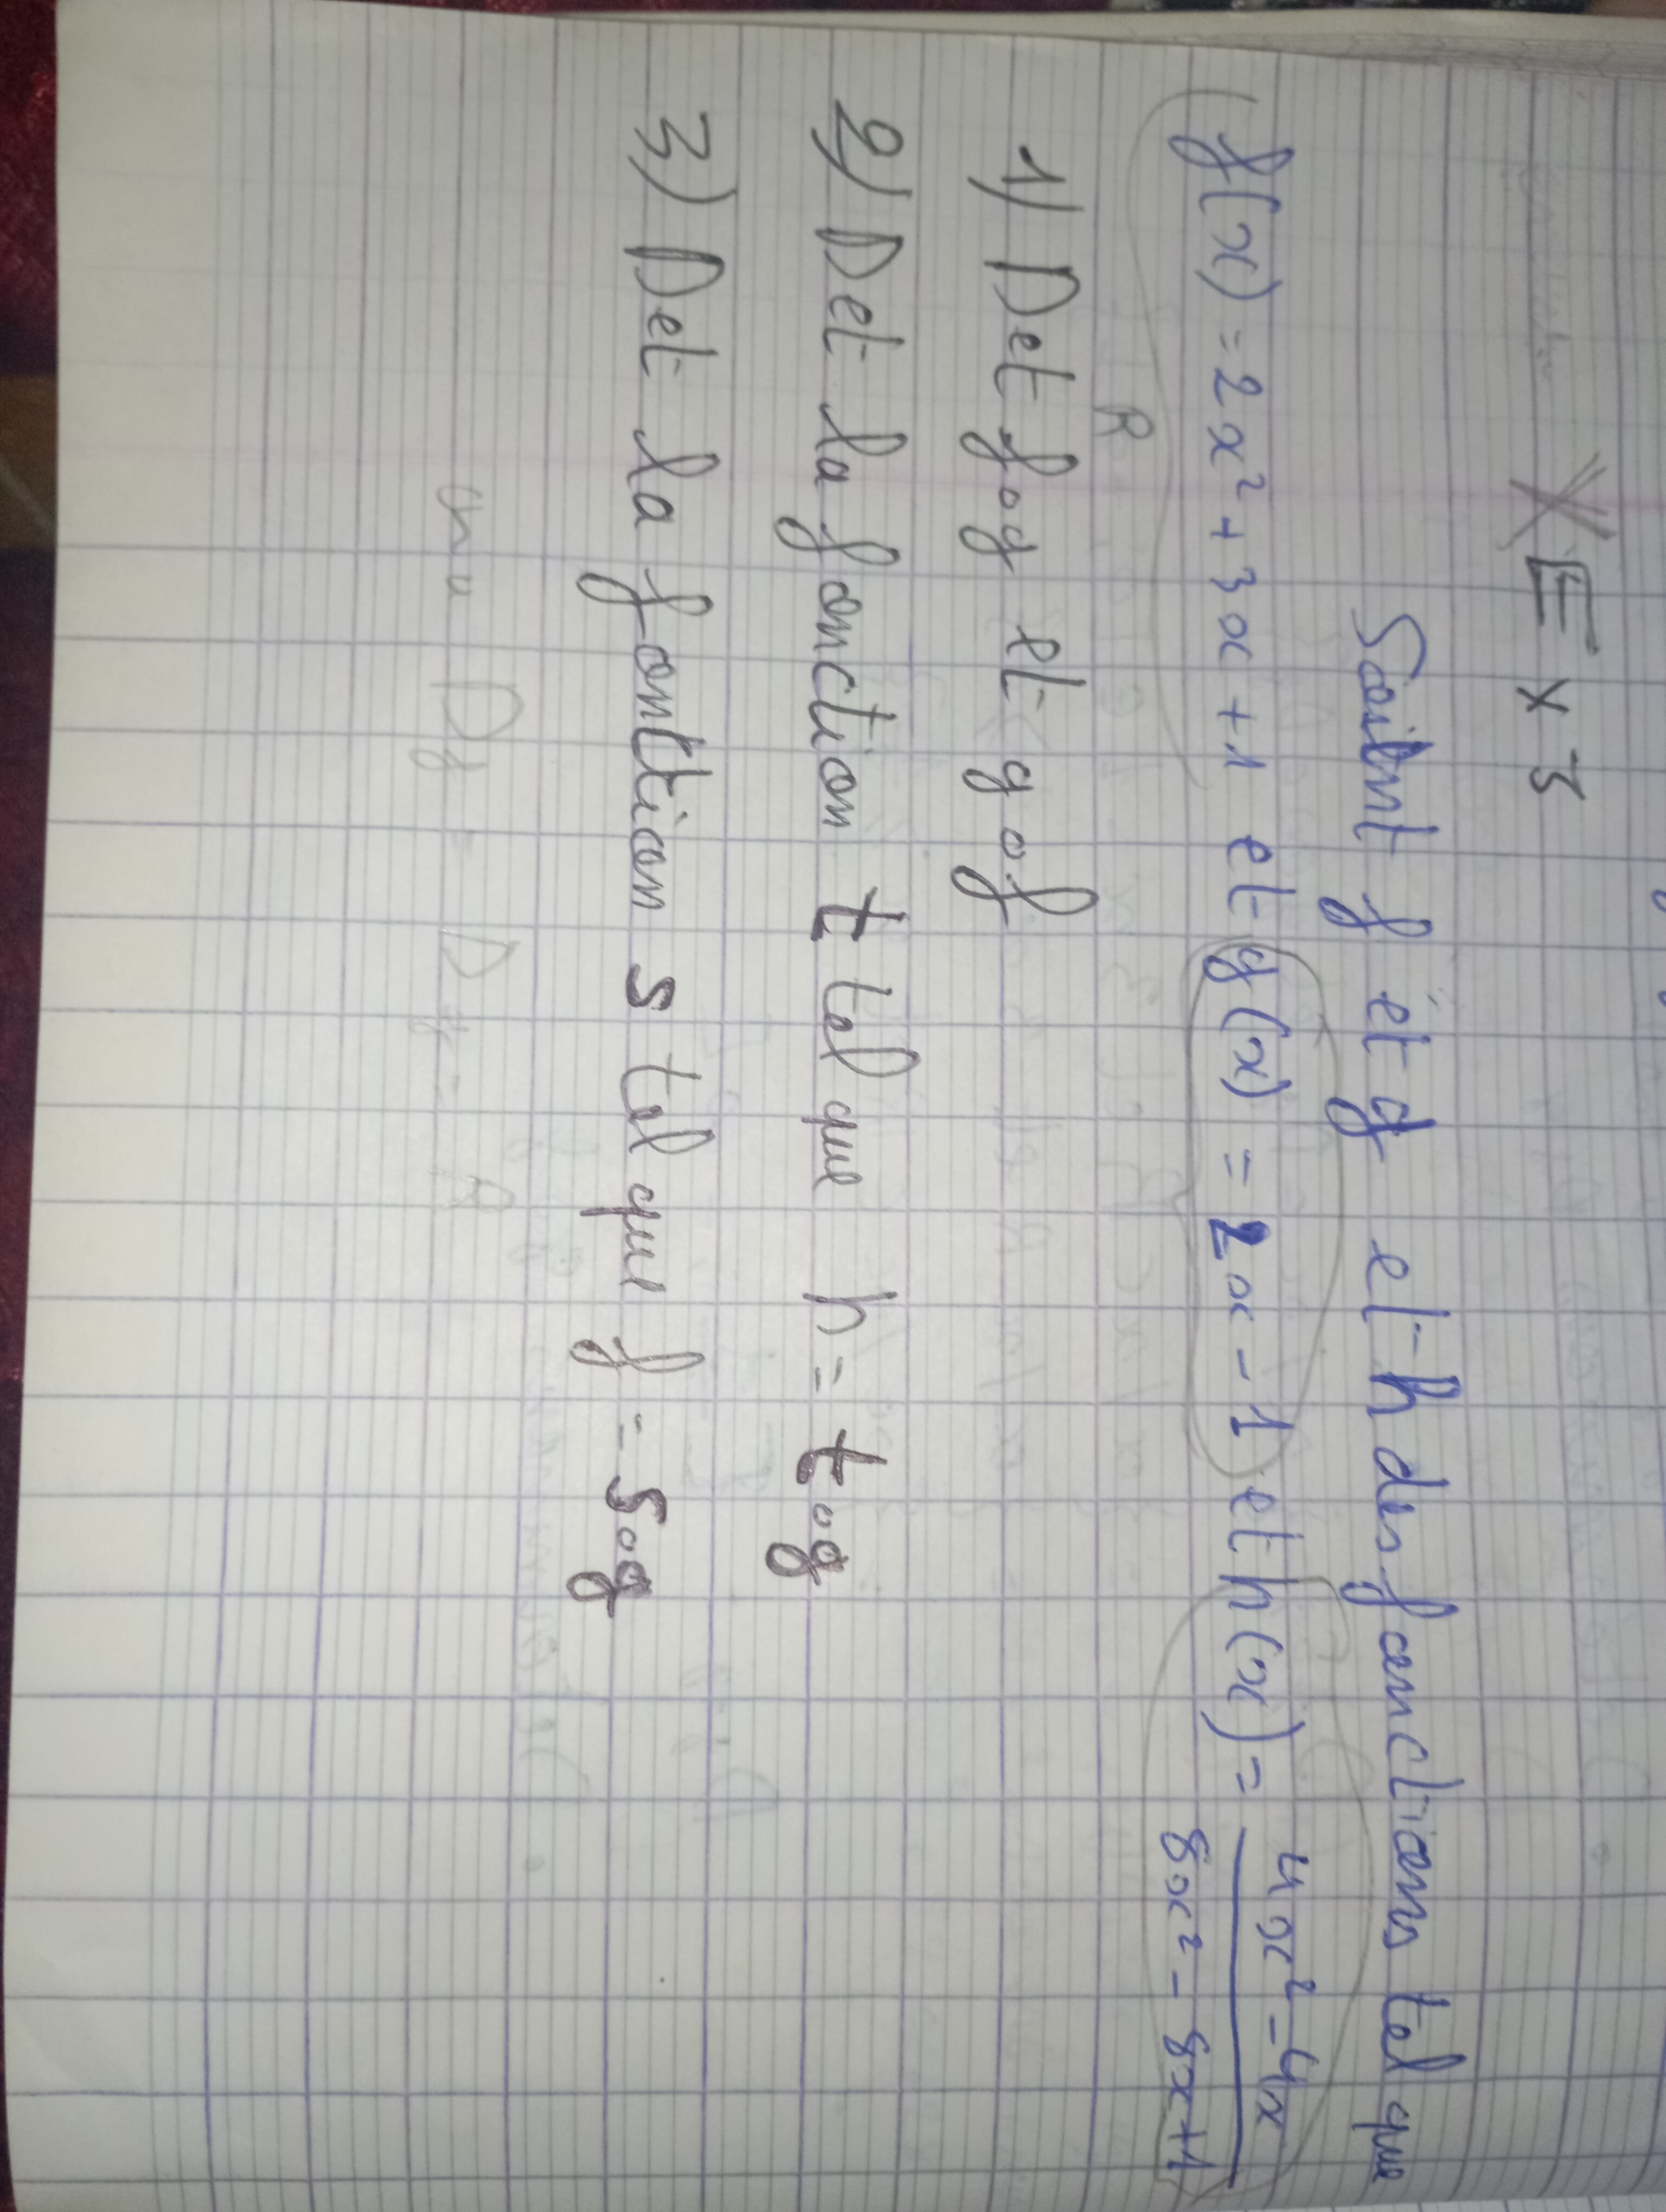 Ex 3
Soient f et g et h des fonctions tel que
f(x) = 2x² + 3x + 1 et g(x) = 2x - 1 et h(x) = (4x² - 4x)/(8x² - 8x + 1)
R
1) Det fog et gof
2) Det la fonction t tel que h = tog
3) Det la fonction s tel que f = sog